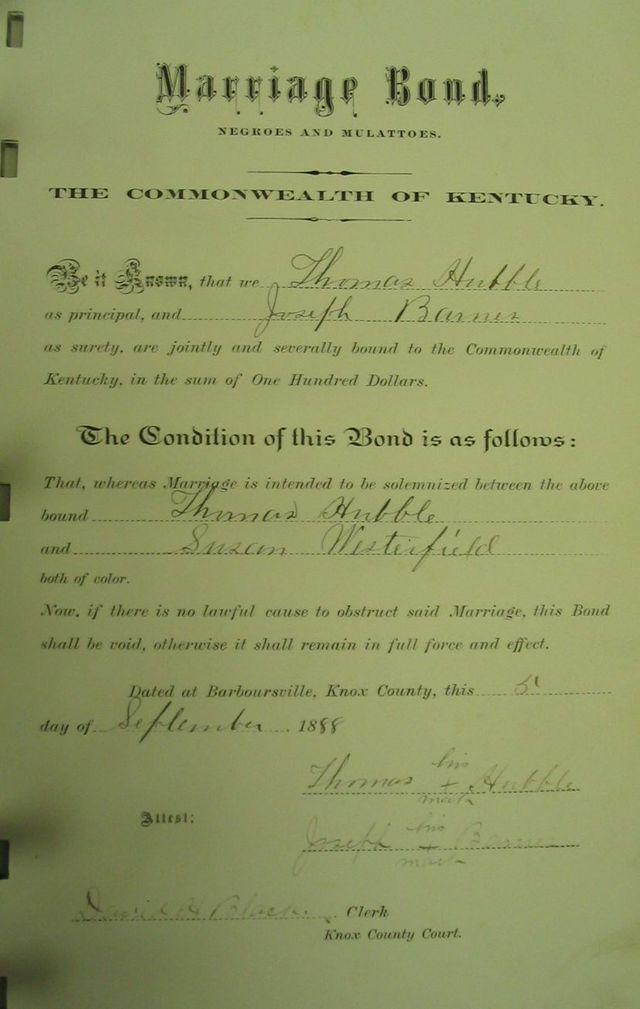 Marriage Bond,
NEGROES AND MULATTOES.
THE COMMONWEALTH OF KENTUCKY.
Be it Known, that we Thomas Hubble
as principal, and Joseph Barner
as surety, are jointly and severally bound to the Commonwealth of
Kentucky, in the sum of One Hundred Dollars.
The Condition of this Bond is as follows:
That, whereas Marriage is intended to be solemnized between the above
bound Thomas Hubble
and Susan Westerfield
both of color.
Now, if there is no lawful cause to obstruct said Marriage, this Bond
shall be void, otherwise it shall remain in full force and effect.
Dated at Barboursville, Knox County, this 5
day of September 1888
his
Thomas + Hubble
mark
Attest:
his
Joseph + Barner
mark
David H Black, Clerk
Knox County Court.